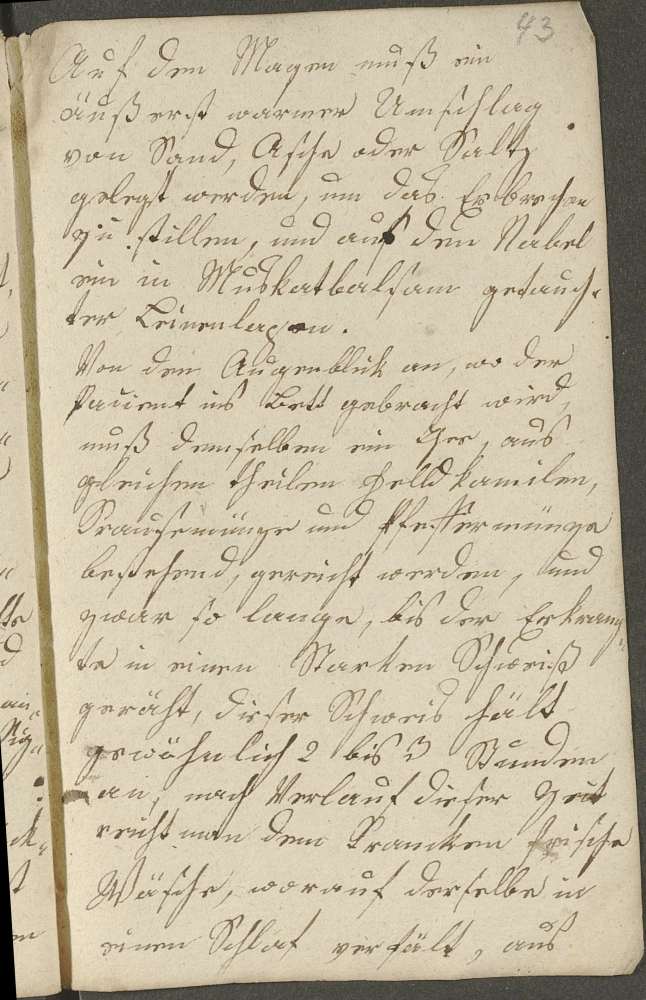 43
Auf den Magen muß ein
äußerst warmer Umschlag
von Sand, Asche oder Saltz
gelegt werden, um das Erbrechen
zu stillen, und auf den Nabel
ein in Muskatbalsam getauch-
ter Leinenlappen.
Von dem Augenblik an, wo der
Pacient ins Bett gebracht wird,
muß demselben ein Thee, aus
gleichen theilen Felldkamilen,
Krausemünze und Pfeffermünze
bestehend, gereicht werden, und
zwar so lange, bis der Erkrank-
te in einen Starken Schweiß
geräht, dieser Schweis hält
gewöhnlich 2 bis 3 Stunden
an, nach Verlauf dieser Zeit
reicht man dem Krancken frische
Wäsche, worauf derselbe in
einen Schlaf verfält, aus